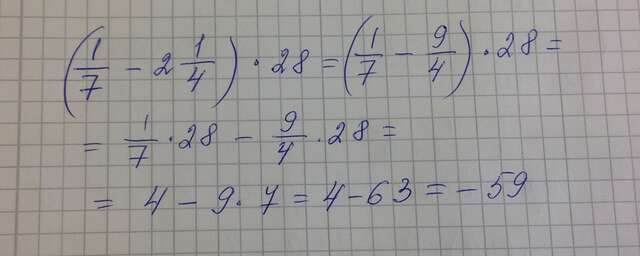 (1/7 - 2 1/4) · 28 = (1/7 - 9/4) · 28 =
= 1/7 · 28 - 9/4 · 28 =
= 4 - 9 · 7 = 4 - 63 = -59